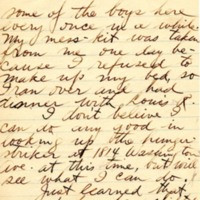 some of the boys here
every once in a while
My mess-kit was taken
from me one day be-
cause I refused to
make up my bed, so
I ran over and had
dinner with Louis
I don't believe I
can do any good in
looking up the hunger
striker at 1814
at this time, but will
see what I can do.
Just learned that